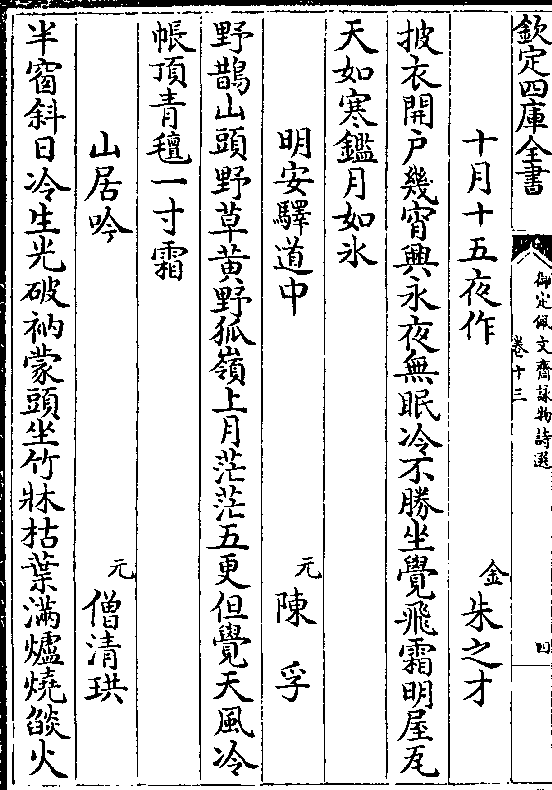 欽定四庫全書
御定佩文齋詠物詩選
卷十三
四
十月十五夜作
金
朱之才
披衣開戶幾宵興永夜無眠冷不勝坐覺飛霜明屋瓦
天如寒鑑月如氷
明安驛道中
元
陳孚
野鵲山頭野草黃野狐嶺上月茫茫五更但覺天風冷
帳頂青氊一寸霜
山居吟
元
僧清珙
半窗斜日冷生光破衲蒙頭坐竹牀枯葉滿爐燒燄火